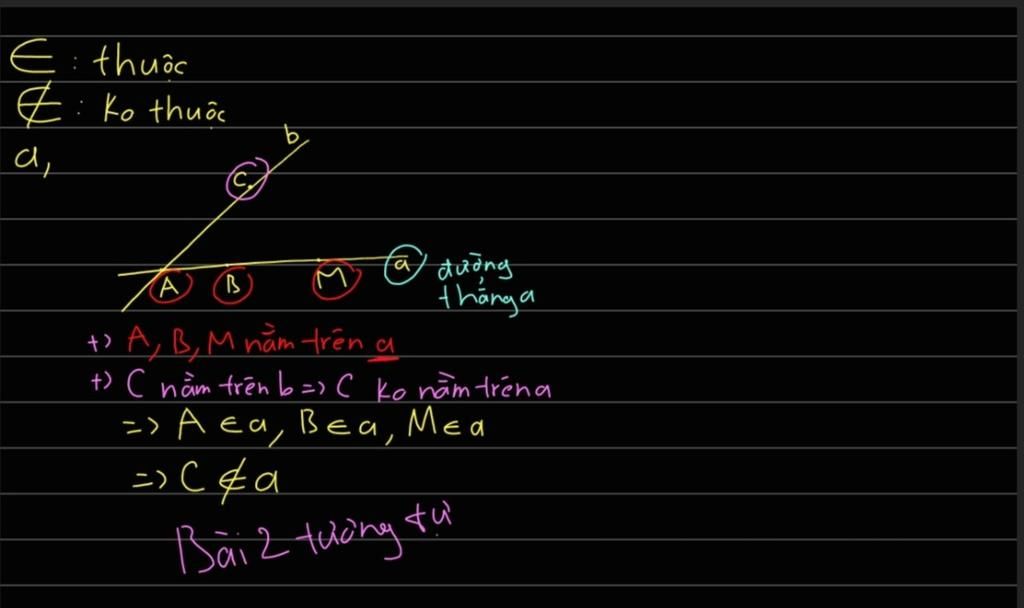 ∈ : thuộc
∉ : ko thuộc
a,
b
C
A B M a
đường
thẳng a
+) A, B, M nằm trên a
+) C nằm trên b => C ko nằm trên a
=> A ∈ a, B ∈ a, M ∈ a
=> C ∉ a
Bài 2 tương tự